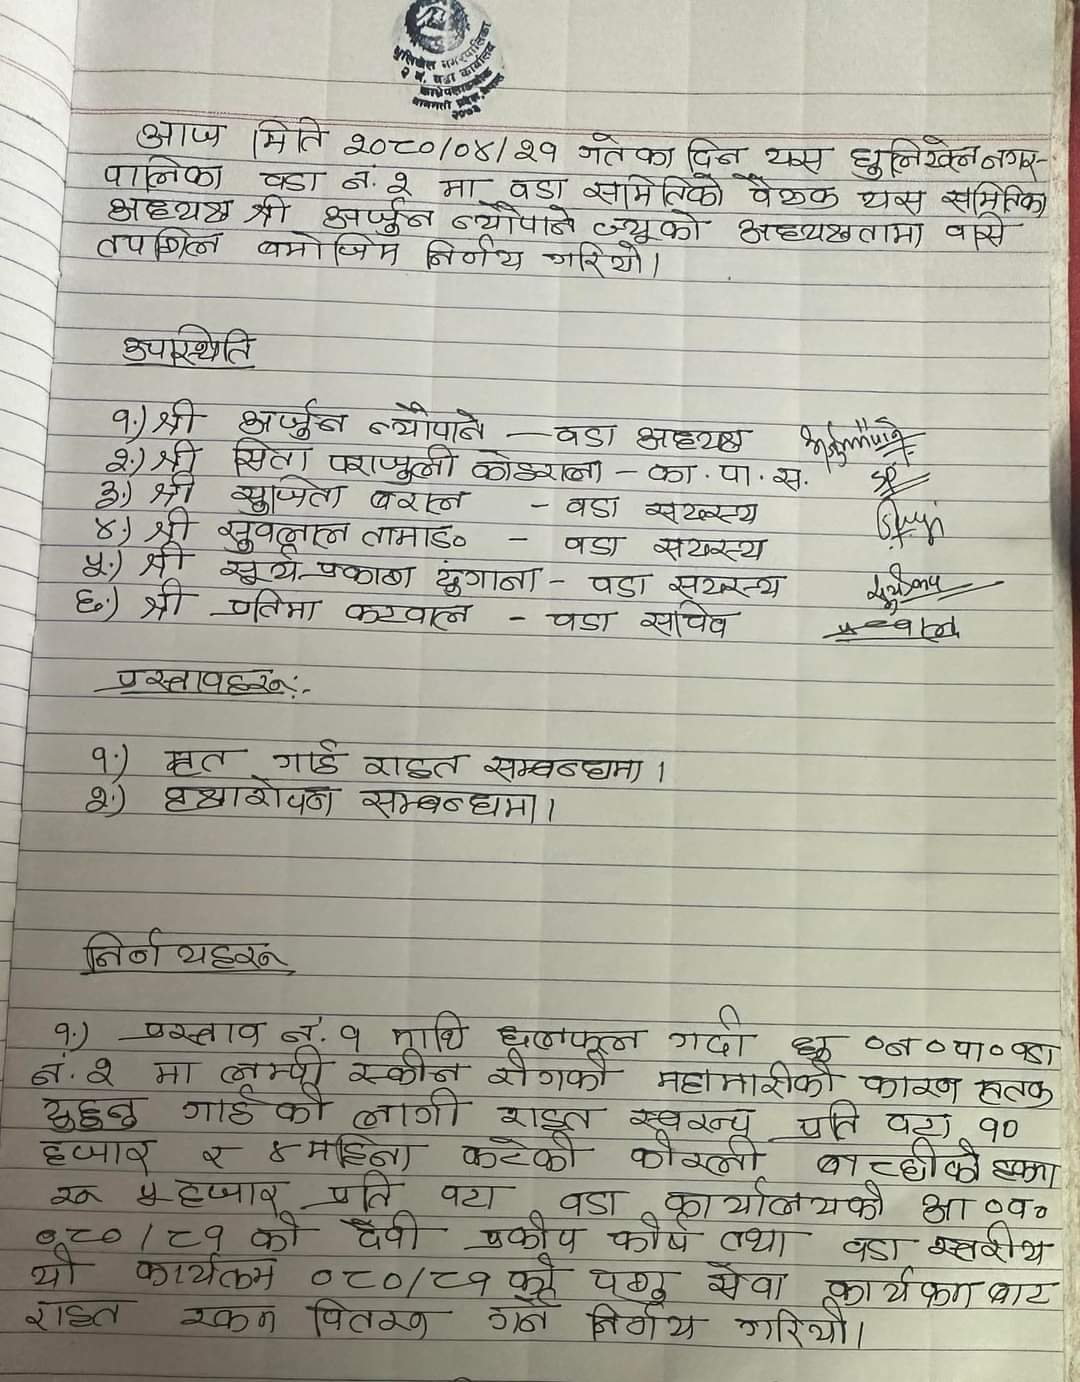 धुलिखेल नगरपालिका
२ नं. वडा कार्यालय
काभ्रेपलाञ्चोक
बागमती प्रदेश, नेपाल
२०७३
आज मिति २०८०/०४/२१ गतेका दिन यस धुलिखेल नगर-
पालिका वडा नं. २ मा वडा समितिको बैठक यस समितिका
अध्यक्ष श्री अर्जुन न्यौपाने ज्यूको अध्यक्षतामा बसि
तपशिल बमोजिम निर्णय गरियो।
उपस्थिति
१.) श्री अर्जुन न्यौपाने – वडा अध्यक्ष
२.) श्री सिता पराजुली कोइराला – का. पा. स.
३.) श्री सुजिता बराल - वडा सदस्य
४.) श्री सुवलाल तामाङ - वडा सदस्य
५.) श्री सूर्य प्रकाश ढुंगाना - वडा सदस्य
६.) श्री प्रतिमा करवाल - वडा सचिव
प्रस्तावहरू:-
१.) मृत गाई राहत सम्बन्धमा।
२.) वृक्षारोपन सम्बन्धमा।
निर्णयहरू
१.) प्रस्ताव नं. १ माथि छलफल गर्दा धु०न०पा० वडा
नं. २ मा लम्पी स्कीन रोगको महामारीको कारण मृतक
दुहुनु गाईको लागी राहत स्वरूप प्रति वटा १०
हजार र ४ महिना कटेको कोरली बाच्छीको हकमा
रू ५ हजार प्रति वटा वडा कार्यालयको आ०व०
०८०/८१ को दैवी प्रकोप कोष तथा वडा स्तरीय
यो कार्यक्रम ०८०/८१ को पशु सेवा कार्यक्रम बाट
राहत रकम वितरण गर्ने निर्णय गरियो।